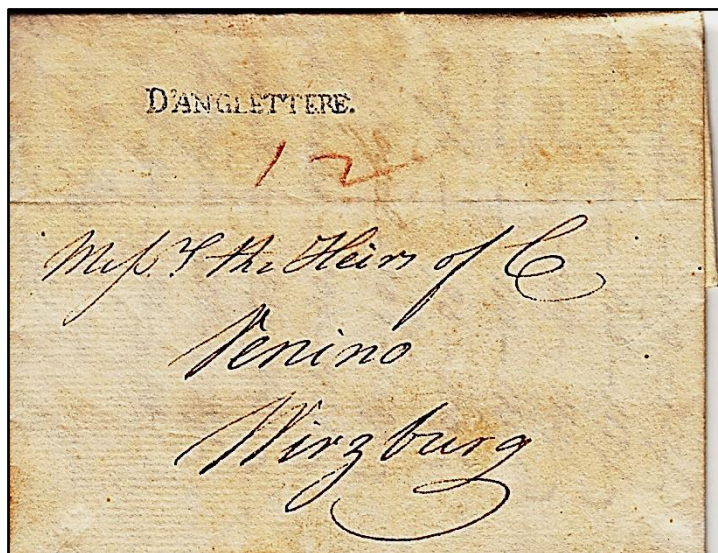 D'ANGLETTERE.
12
Messrs the Heirs of C
Venino
Wirzburg